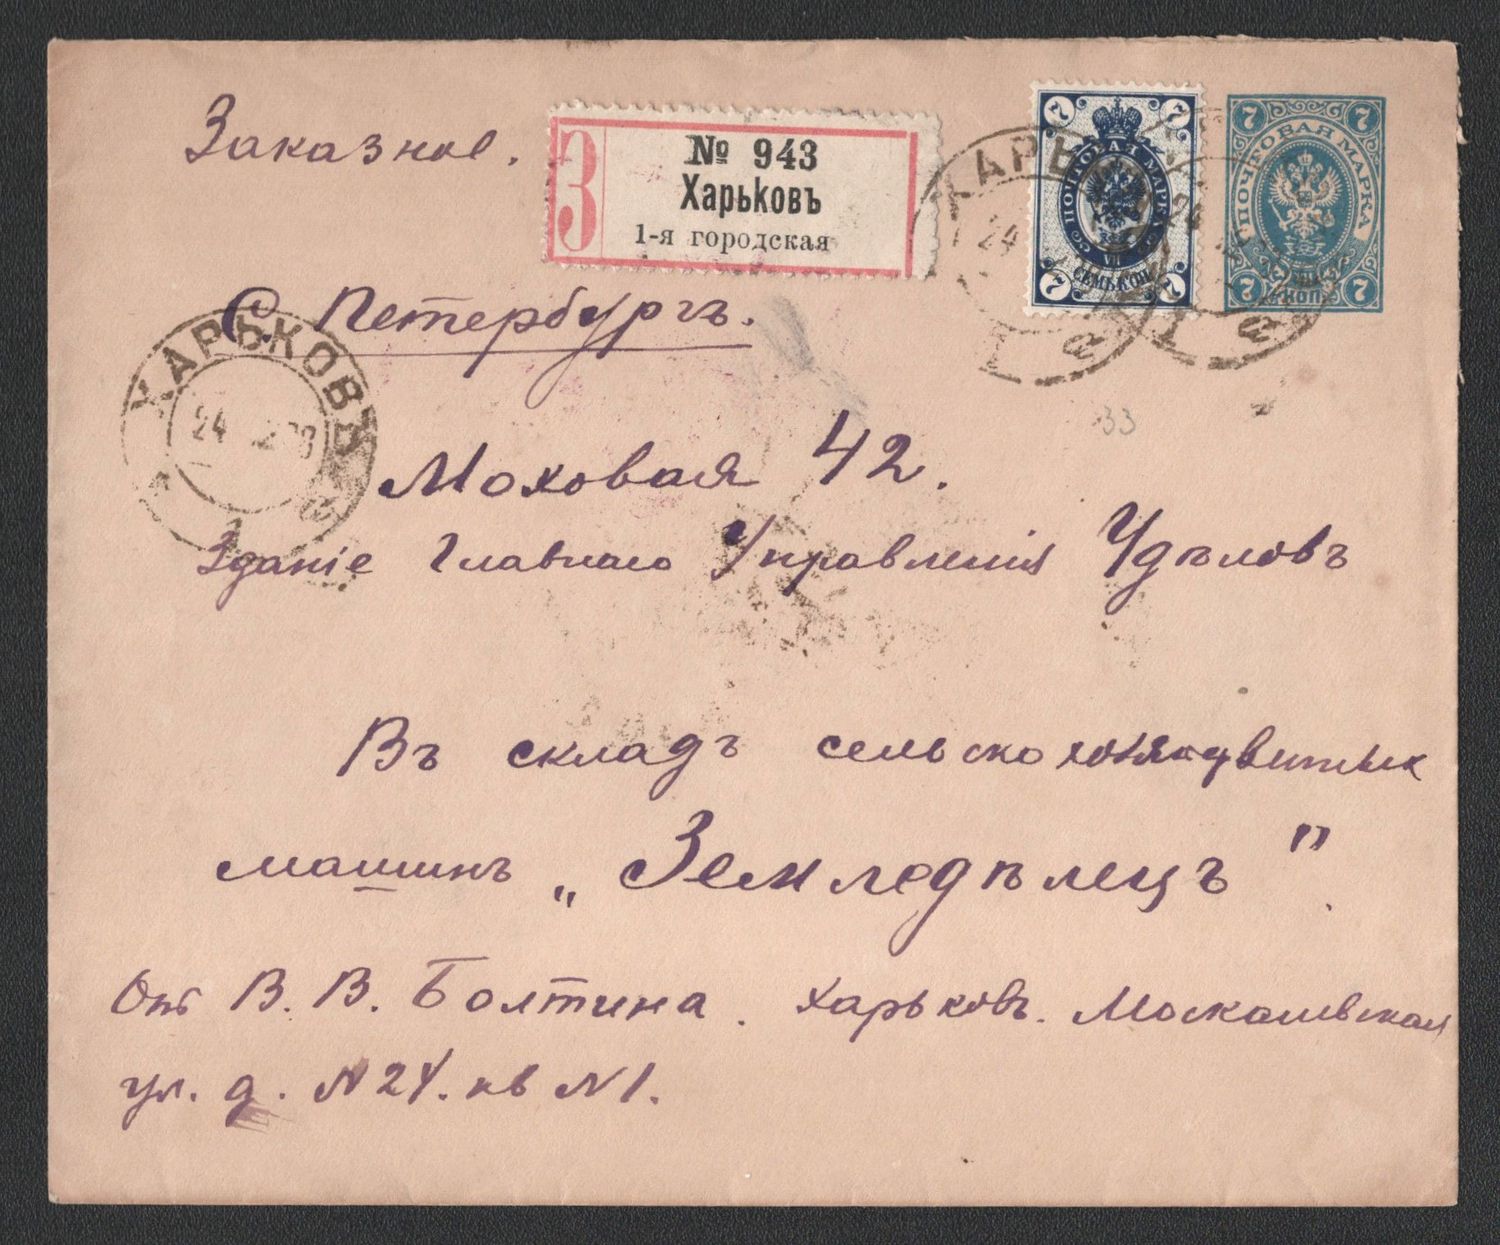 Заказное.
З
№ 943
Харьковъ
1-я городская
7 7
ПОЧТОВАЯ МАРКА
VII
СЕМЬ КОП.
7 7
7 7
ПОЧТОВАЯ МАРКА
7 КОП. 7
ХАРЬК
24
24
1
1
С. Петербургъ.
ХАРЬКОВЪ
24
1
33
Моховая 42.
Зданіе Главнаго Управленія Удѣловъ
Въ складъ сельско
машинъ „Земледѣлецъ".
Отъ В. В. Болтина. Харьковъ. Москалевская
ул. д. N 24. кв N 1.